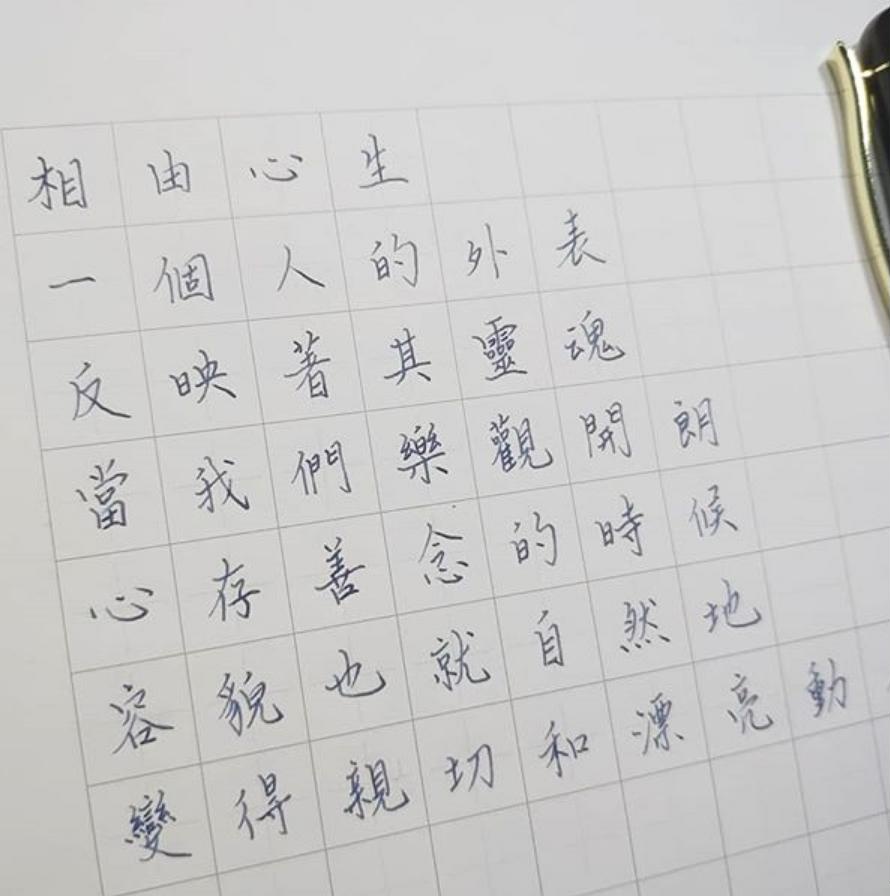 相由心生
一個人的外表
反映著其靈魂
當我們樂觀開朗
心存善念的時候
容貌也就自然地
變得親切和漂亮動